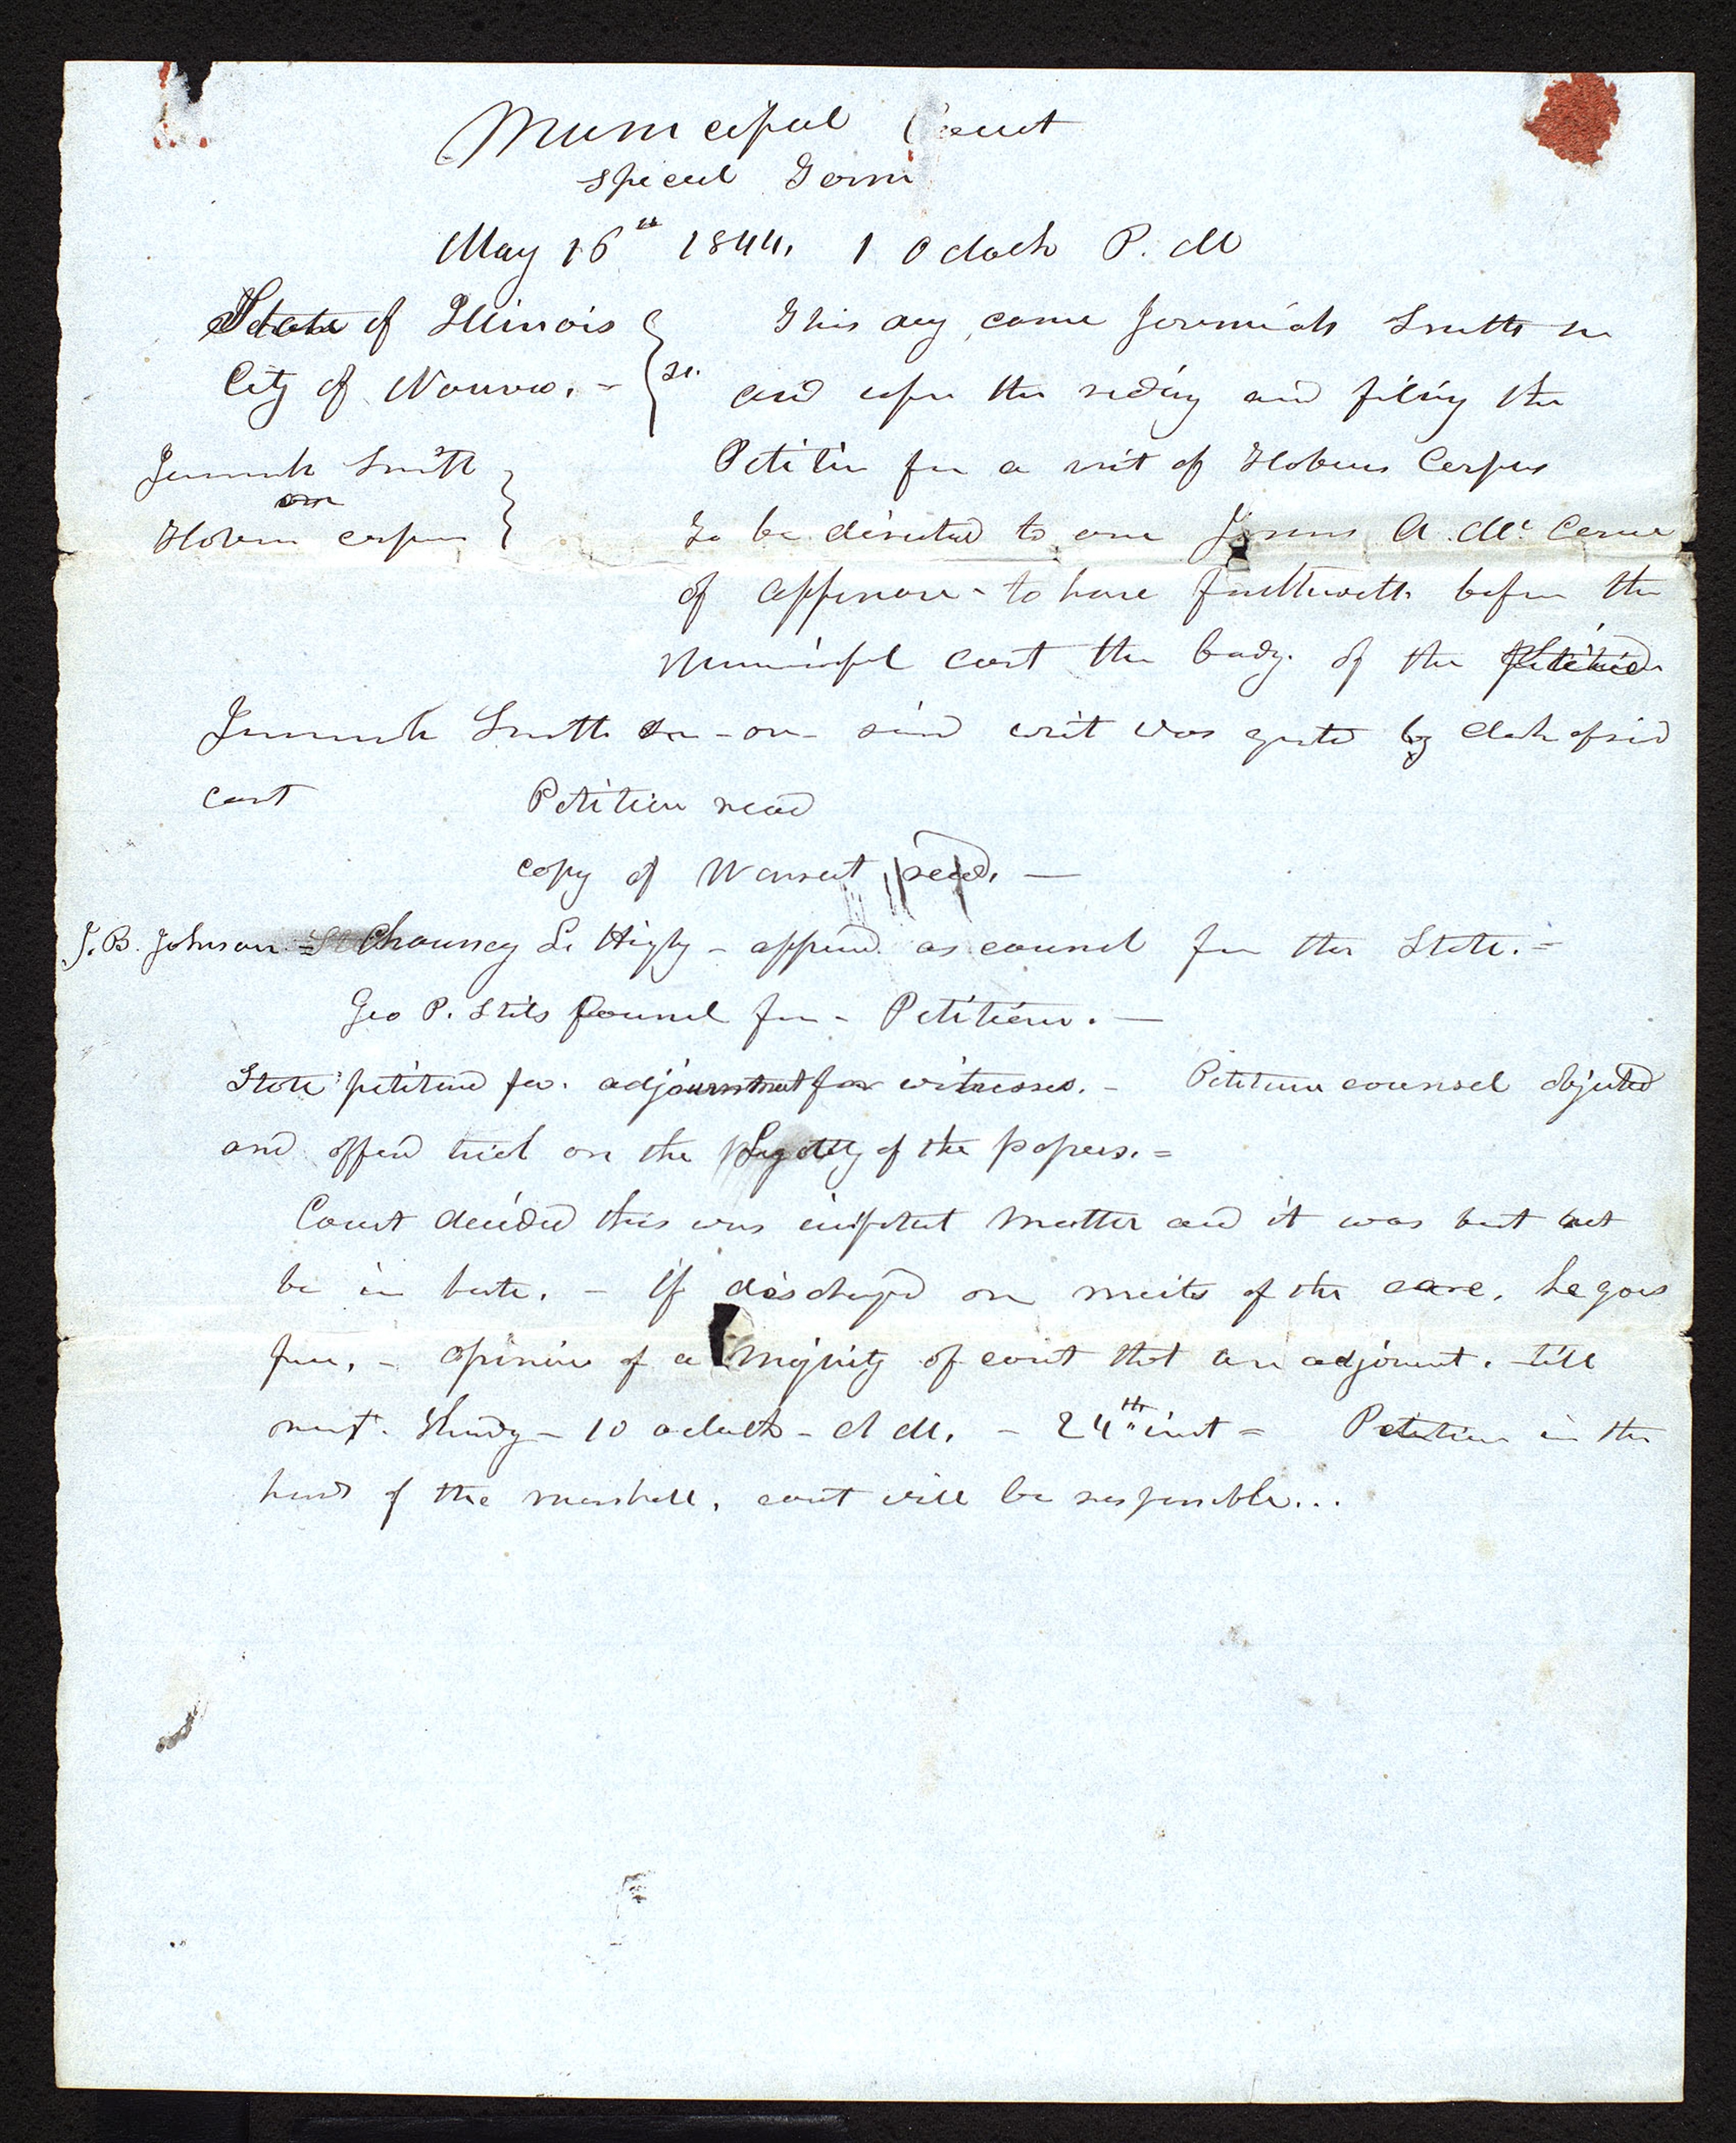 Municipal Court
special Term
May 16th 1844. 1 Oclock P. M
State of Illinois
City of Nauvoo. -
This day came Jeremiah Smith
and upon the reding and filing the
Jeremiah Smith
on
Habeus corpus
Petition for a writ of Habeus Corpus
To be directed to one James A. Mc. Canse
of appanoose - to have forthwith before the
Municipal court the body. of the petitioner
Jeremiah Smith Sen - on - said writ was granted by clerk of said
court Petition read
copy of Warrant read. —
T. B. Johnson = Chauncy L. Higby - appeared as council for the State. =
Geo P. Stiles Council for - Petitioner. —
State petitiond for. adjournment for witnesses. - Petitioners counsel objected
and offered trial on the Legality of the papers. =
Court decided this was important matter and it was best not
be in haste. - if discharged on merits of the case. he goes
free. - opinion of a Majority of court that an adjournmt. till
next. Thursdy - 10 oclock - A M. - 24th inst = Petitioner in the
hands of the marshall. court will be responsible...